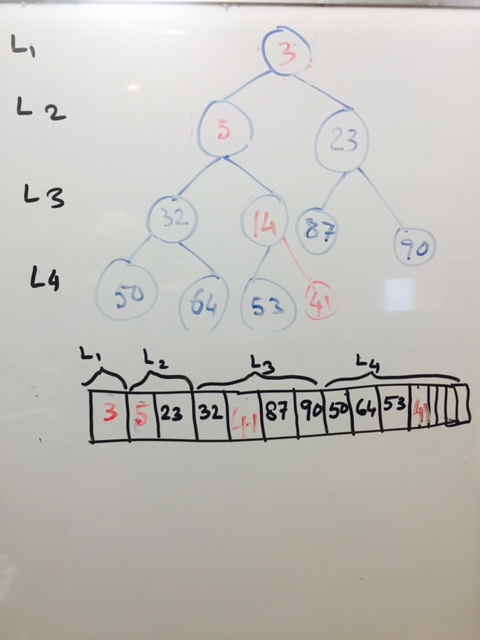 L1 3
L2 5 23
L3 32 14 87 90
L4 50 64 53 41
L1 L2 L3 L4
3 5 23 32 41 87 90 50 64 53 41